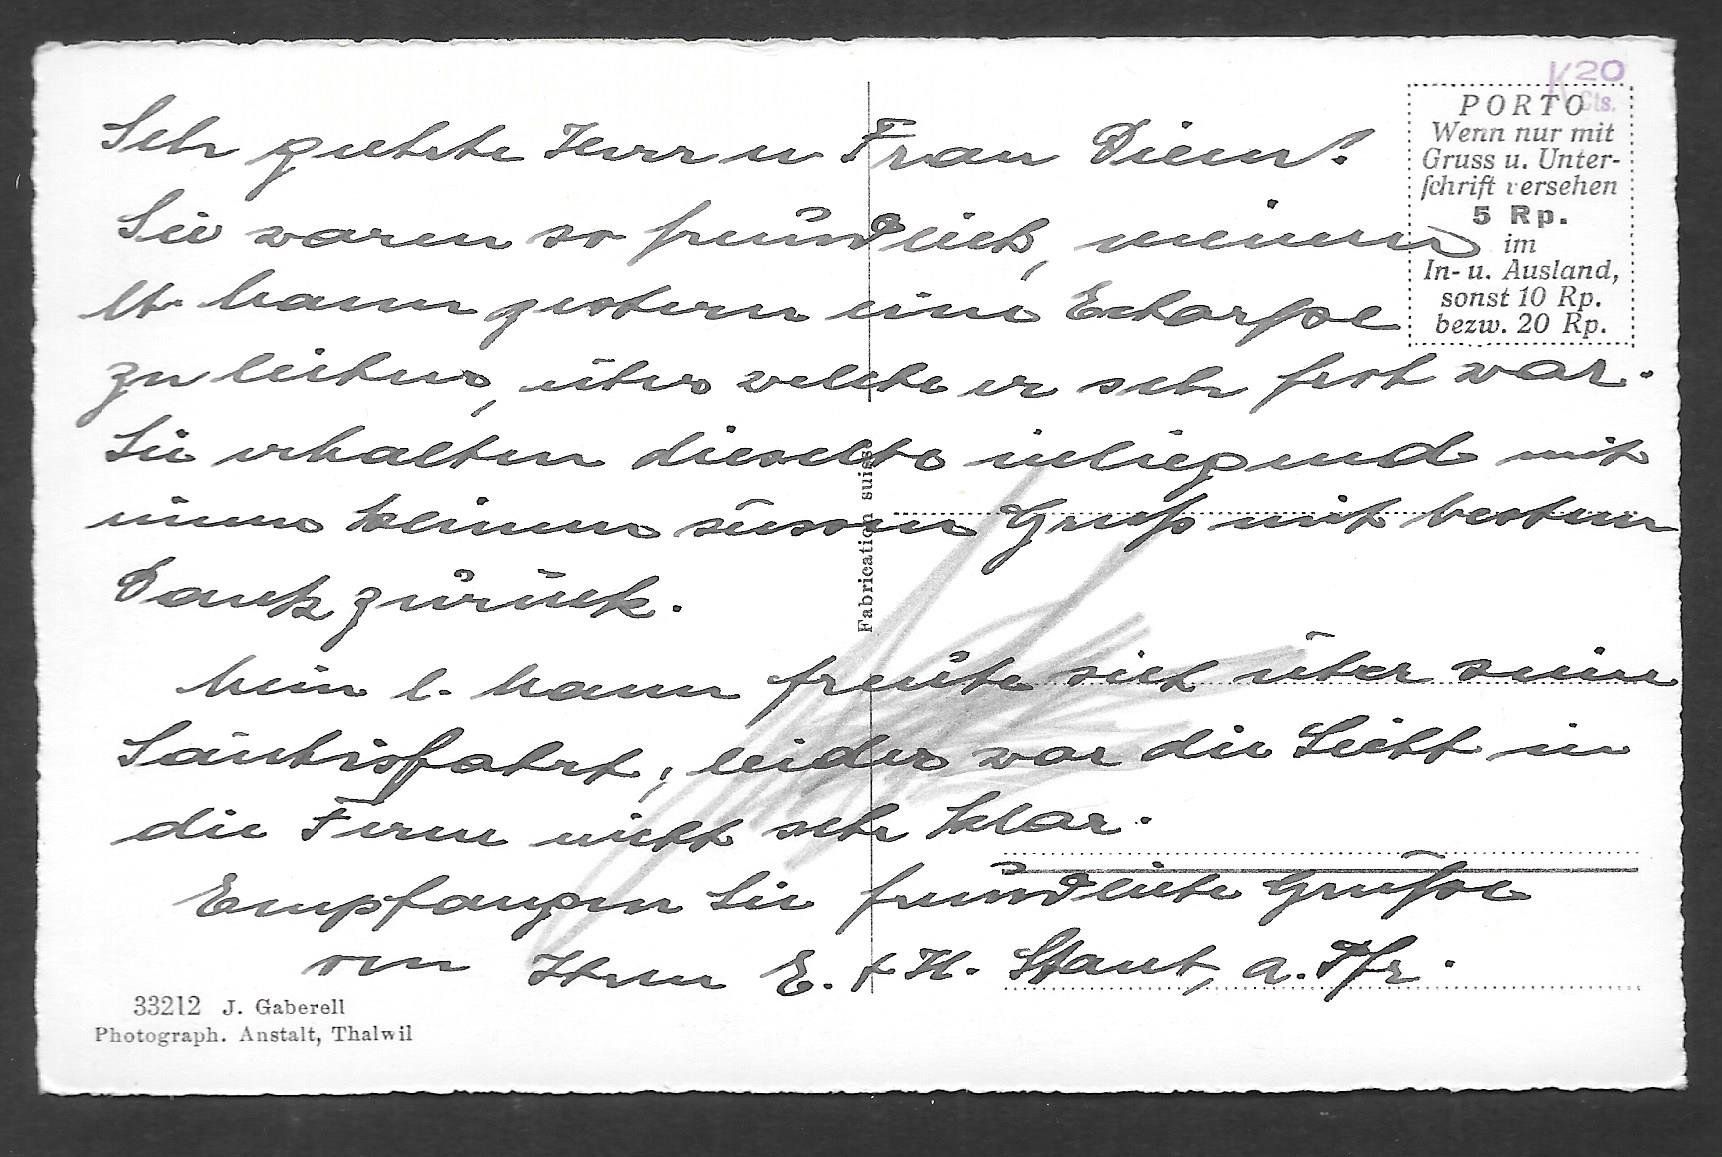 Sehr geehrte Herr u Frau Diem!
Sie waren so freundlich, meinem
lb. Mann gestern eine Echarpe
zu leihen, über welche er sehr froh war.
Sie erhalten dieselbe inliegend mit
einem kleinen süssen Gruß mit bestem
Dank zurück.
Mein l. Mann freute sich über seine
Säntisfahrt, leider war die Sicht in
die Ferne nicht sehr klar.
Empfangen Sie freundliche Grüße
von Ihren E. + H. a. Pfr.
K20
Cts.
PORTO
Wenn nur mit
Gruss u. Unter-
schrift versehen
5 Rp.
im
In- u. Ausland,
sonst 10 Rp.
bezw. 20 Rp.
Fabrication suisse
33212 J. Gaberell
Photograph. Anstalt, Thalwil